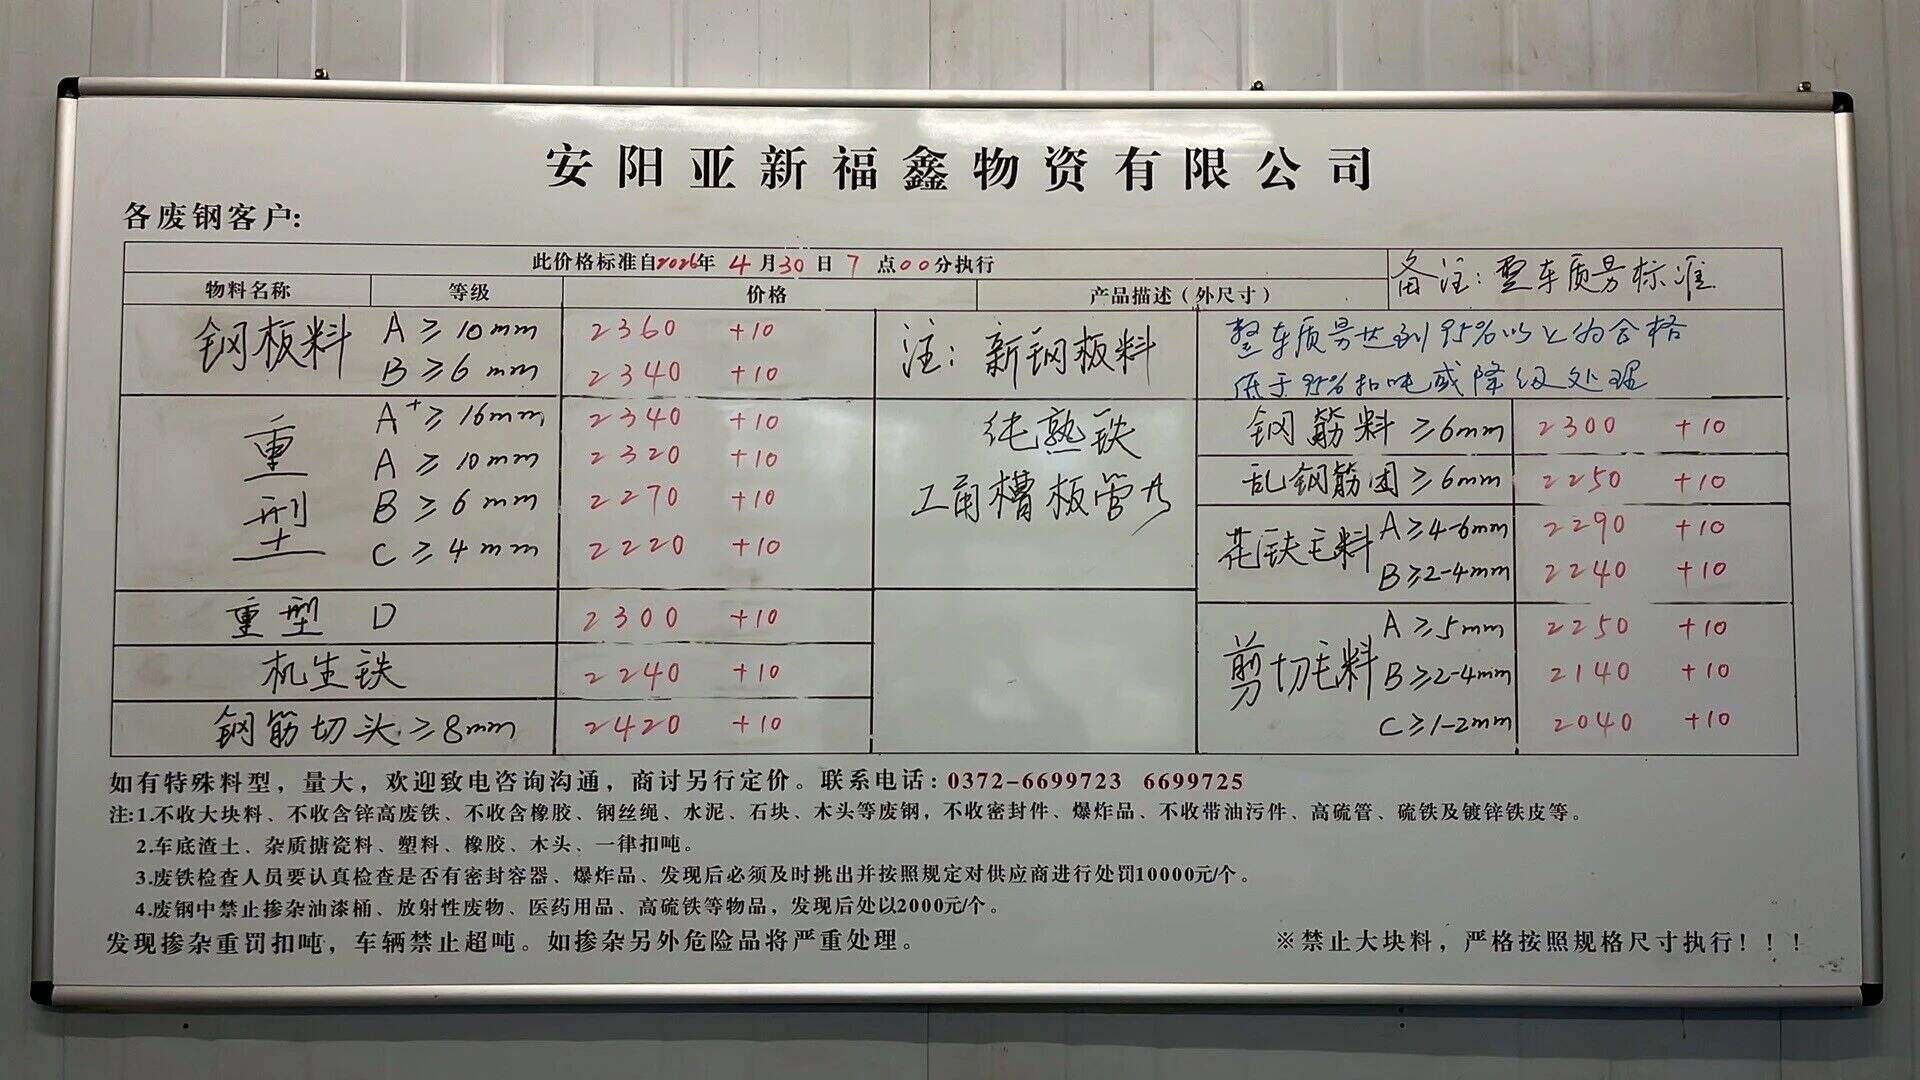 安阳亚新福鑫物资有限公司
各废钢客户:
此价格标准自2026年 4 月 30 日 7 点 00 分执行
备注:整车质量标准
物料名称 等级 价格 产品描述(外尺寸)
钢板料 A ≥ 10mm 2360 +10
B ≥ 6 mm 2340 +10
注: 新钢板料
整车质量达到95%以上的合格
低于95%扣吨或降级处理
重型 A+ ≥ 16mm 2340 +10
A ≥ 10mm 2320 +10
B ≥ 6mm 2270 +10
C ≥ 4mm 2220 +10
纯熟铁
工角槽板管
钢筋料 ≥6mm 2300 +10
乱钢筋团 ≥6mm 2250 +10
花铁毛料 A≥4-6mm 2290 +10
B≥2-4mm 2240 +10
重型 D 2300 +10
机生铁 2240 +10
钢筋切头 ≥8mm 2420 +10
剪切毛料 A ≥5mm 2250 +10
B≥2-4mm 2140 +10
C≥1-2mm 2040 +10
如有特殊料型，量大，欢迎致电咨询沟通，商讨另行定价。联系电话: 0372-6699723 6699725
注:1.不收大块料、不收含锌高废铁、不收含橡胶、钢丝绳、水泥、石块、木头等废钢，不收密封件、爆炸品、不收带油污件、高硫管、硫铁及镀锌铁皮等。
2.车底渣土、杂质搪瓷料、塑料、橡胶、木头、一律扣吨。
3.废铁检查人员要认真检查是否有密封容器、爆炸品、发现后必须及时挑出并按照规定对供应商进行处罚10000元/个。
4.废钢中禁止掺杂油漆桶、放射性废物、医药用品、高硫铁等物品，发现后处以2000元/个。
发现掺杂重罚扣吨，车辆禁止超吨。如掺杂另外危险品将严重处理。
※禁止大块料，严格按照规格尺寸执行！！！